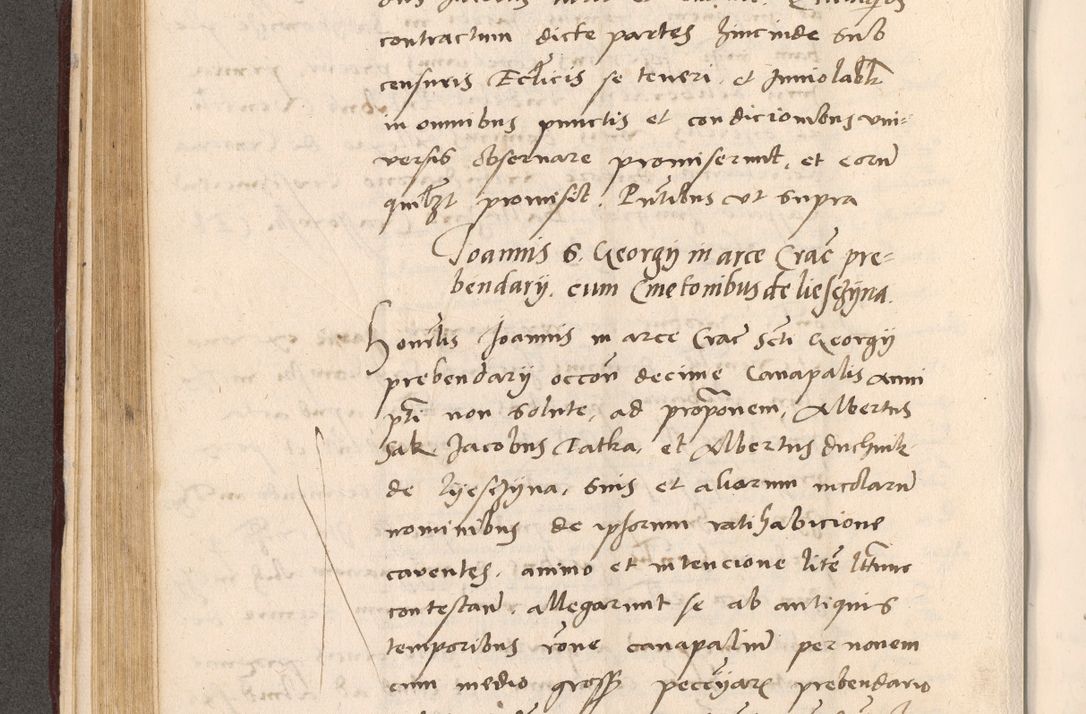 contractum dicte partes hincinde sub
censuris Ecclicis se teneri et Inuiolablr
in omnibus punctis et condicionibus vni-
versis obseruare promiserunt, et eorum
quilbzt promisit. Pntibus vt supra
Joannis S. Georgij in arce Crac pre-
bendarij. cum Cmetonibus de liesczÿna.
Honrlis Joannis in arce Crac Scti Georgij
prebendarij occon decime Canapalis anni
pnti non solute, ad proponem, Albertus
Sak Jacobus Tatka, et Albertus duchnik
de lÿesczÿna, suis et aliorum incolarum
nominibus de ipsorum ratihabicione
caventes, animo et intencione litem lttime
contestan, allegarunt se ab antiquis
temporibus rone canapalium per novem
cum medio gross peccÿar prebendario